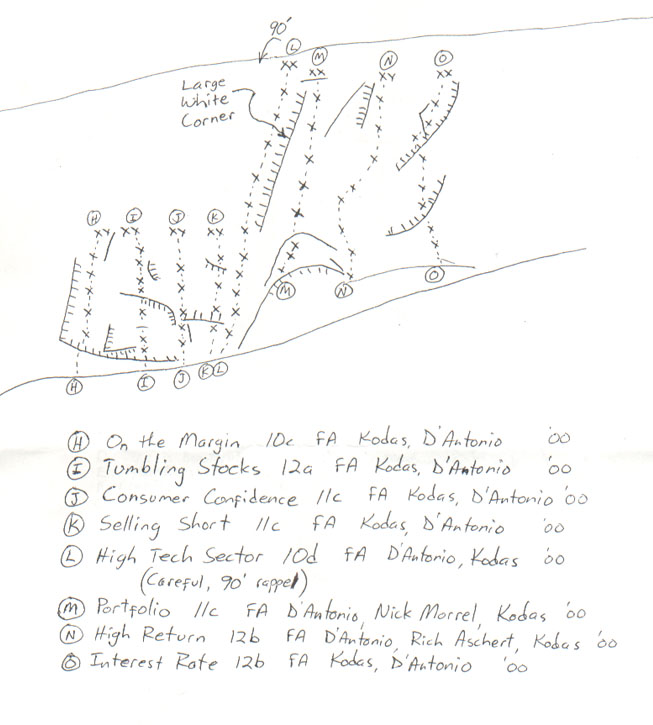 90'
L M
N O
Large
White
Corner
H I J K
M N O
H I J K L
H On the Margin 10c FA Kodas, D'Antonio '00
I Tumbling Stocks 12a FA Kodas, D'Antonio '00
J Consumer Confidence 11c FA Kodas, D'Antonio '00
K Selling Short 11c FA Kodas, D'Antonio '00
L High Tech Sector 10d FA D'Antonio, Kodas '00
(Careful, 90' rappel)
M Portfolio 11c FA D'Antonio, Nick Morrel, Kodas '00
N High Return 12b FA D'Antonio, Rich Aschert, Kodas '00
O Interest Rate 12b FA Kodas, D'Antonio '00